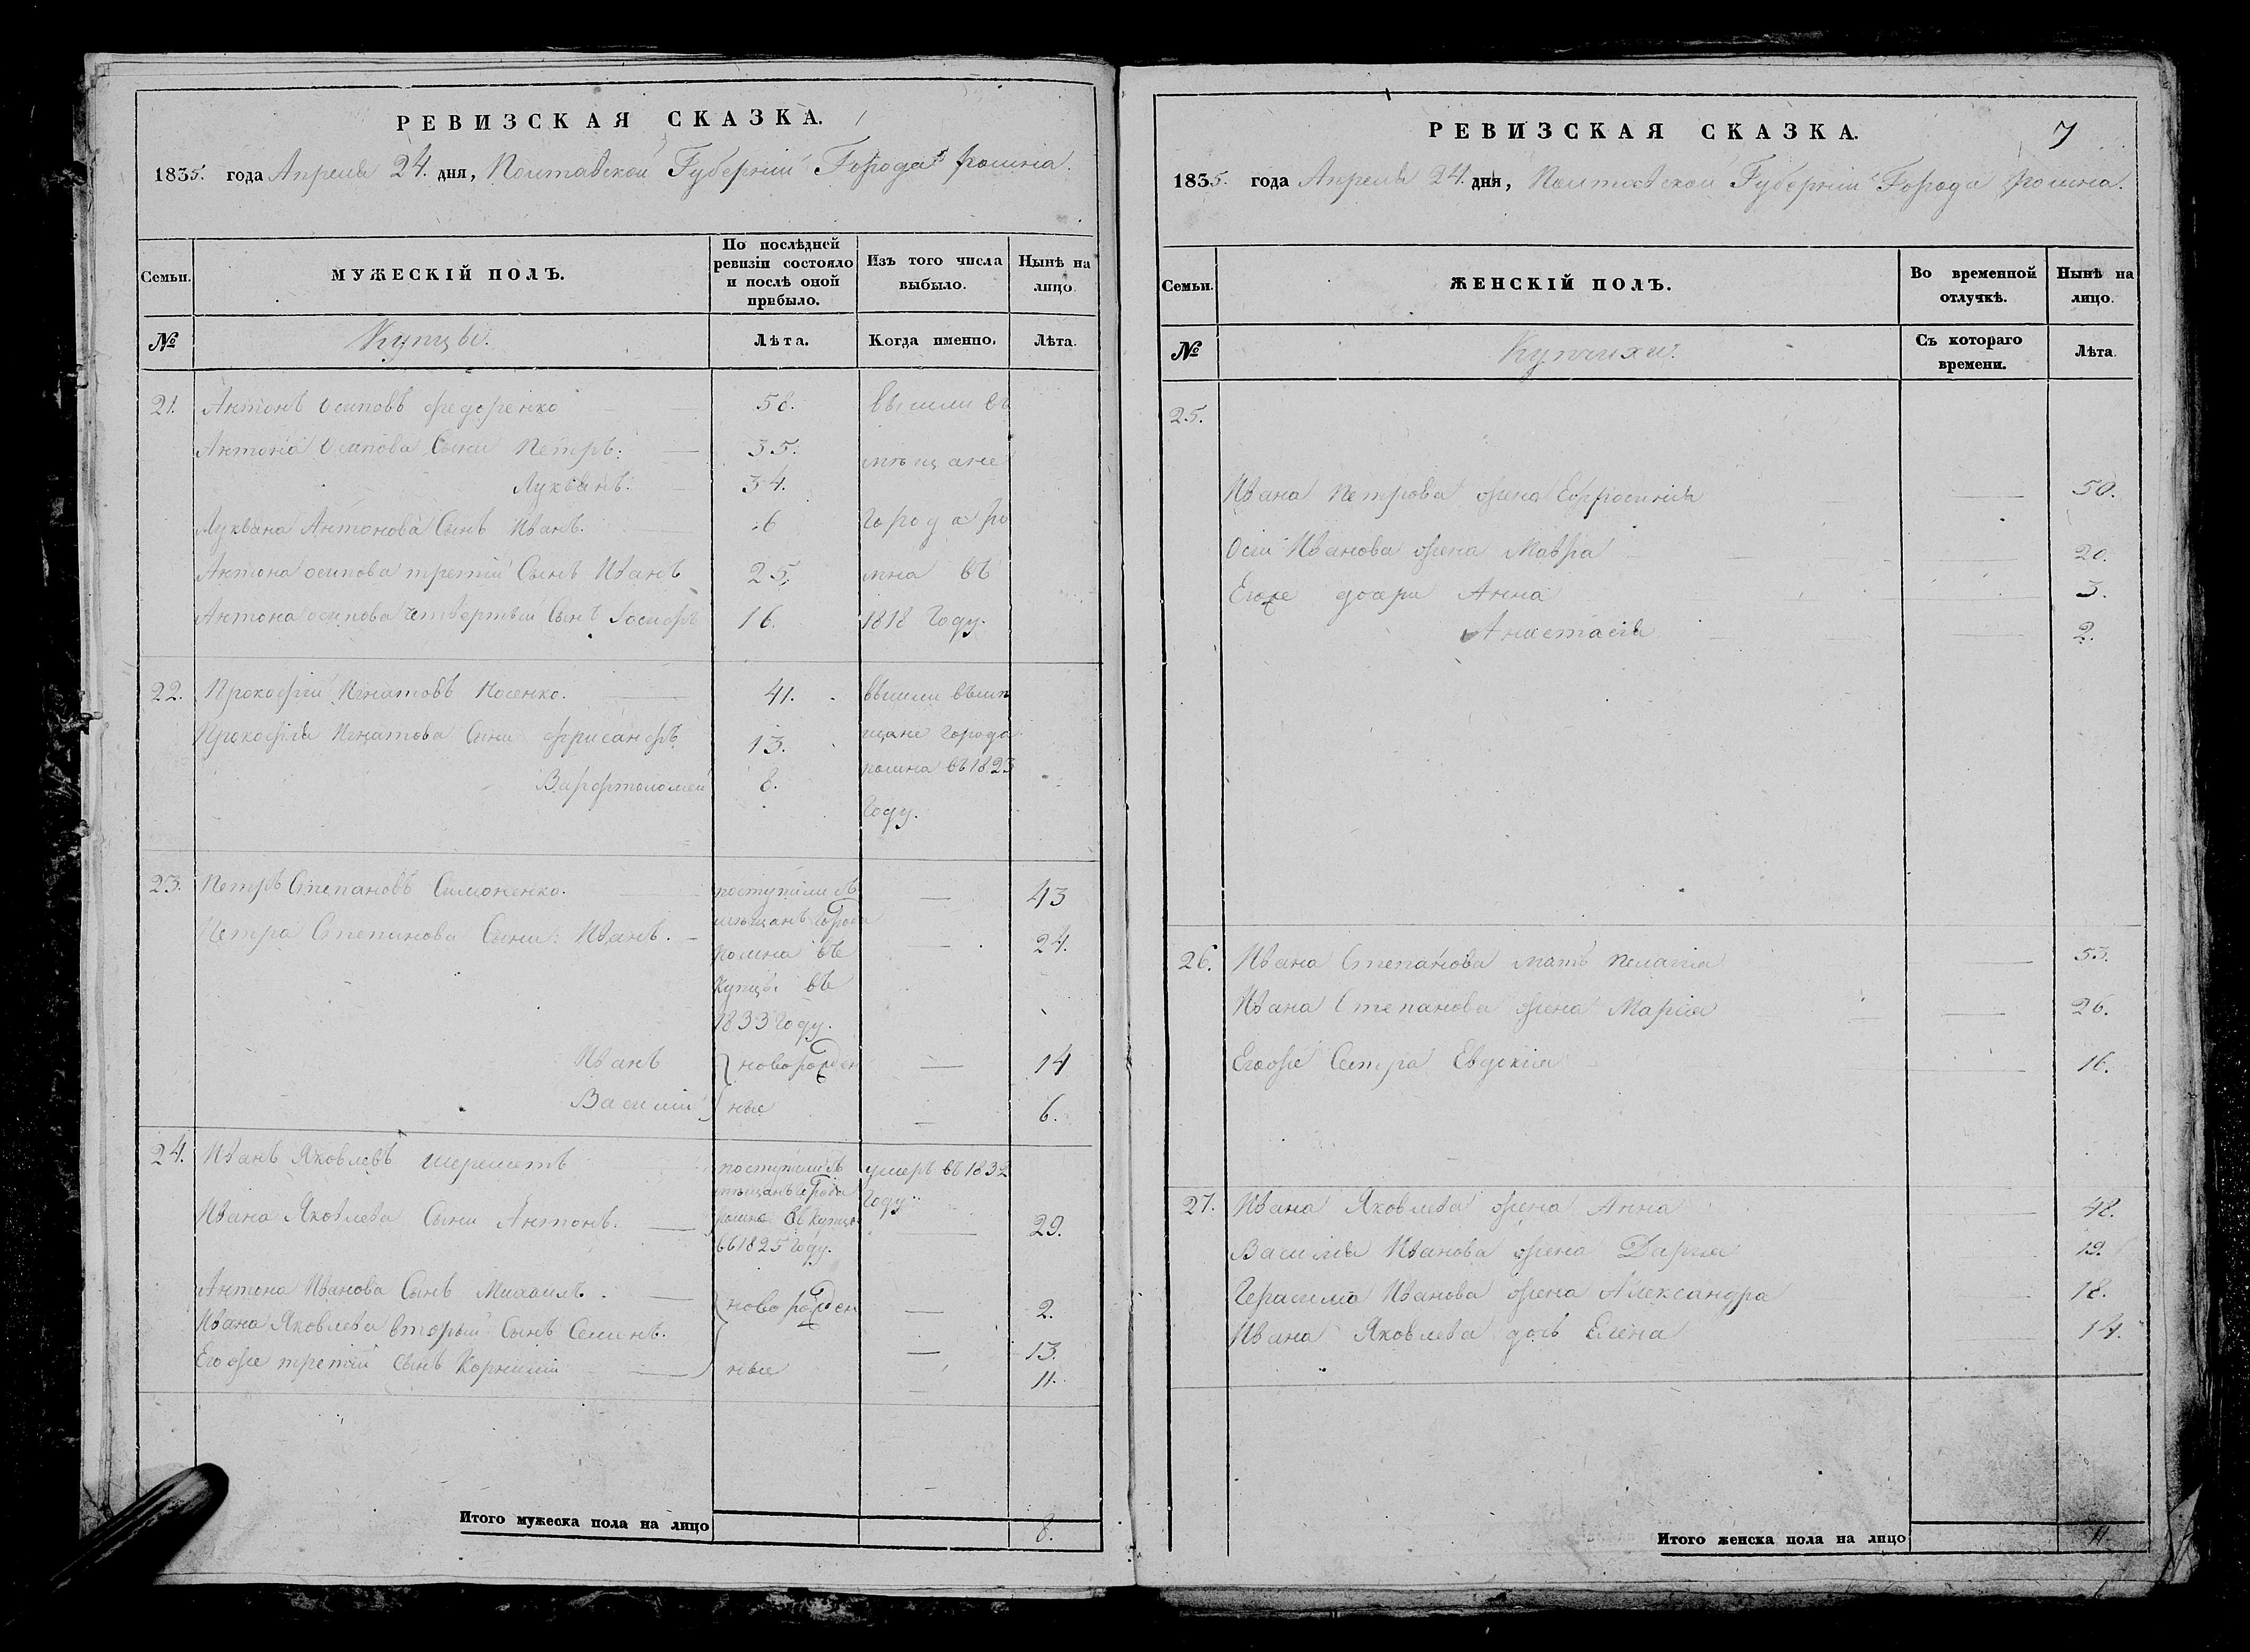 РЕВИЗСКАЯ СКАЗКА.
1835. года Апреля 24. дня, Полтавской Губернии Города Ромна.
Семьи.
МУЖЕСКІЙ ПОЛЪ.
По послѣдней ревизіи состояло и послѣ оной прибыло.
Изъ того числа выбыло.
Нынѣ на лицо.
№
Купцы.
Лѣта.
Когда именно.
Лѣта.
21. Антонъ Осиповъ Федоренко 58. вышли въ
Антона Осипова Сыни Петръ. 35. мѣщане
Лукьянъ. 34.
Лукьяна Антонова Сынъ Иванъ. 6 города Ро
Антона Осипова третій Сынъ Иванъ 25. мна въ
Антона Осипова четвертый Сынъ Іосифъ 16. 1818 Году.
22. Прокофій Игнатовъ Носенко. 41. вышли въ мѣ
Прокофія Игнатова Сыни Фрисанфъ 13. щане города
Варфоломей 8. Ромна въ 1823
Году.
23. Петръ Степановъ Симоненко. поступили съ 43
мѣщанъ Города
Петра Степанова Сыни: Иванъ. Ромна въ 24.
Купцы въ
1833 Году.
Иванъ новорожден 14
Василій ные 6.
24. Иванъ Яковлевъ Шереметъ поступили съ умеръ въ 1832
мѣщанъ города Году.
Ивана Яковлева Сыни Антонъ. Ромна въ Купцы 29.
въ 1825 Году.
Антона Иванова Сынъ Михаилъ. новорожден 2.
Ивана Яковлева вторый Сынъ Семенъ. 13.
Егоже третій Сынъ Корнилій ные 11.
Итого мужеска пола на лицо 8.
РЕВИЗСКАЯ СКАЗКА. 7
1835. года Апреля 24. дня, Полтавской Губерніи Города Ромна.
Семьи.
ЖЕНСКІЙ ПОЛЪ.
Во временной отлучкѣ.
Нынѣ на лицо.
№
Купчихи.
Съ котораго времени.
Лѣта.
25.
Ивана Петрова жена Ефросинія 50.
Осіи Иванова жена Мавра 20.
Егоже дочри Анна 3.
Анастасія 2.
26. Ивана Степанова мать Пелагія 53.
Ивана Степанова жена Марія 26.
Егоже Сестра Евдокія 16.
27. Ивана Яковлева жена Анна 48.
Василія Иванова жена Дарія 19.
Герасима Иванова жена Александра 18.
Ивана Яковлева дочь Елена 14.
Итого женска пола на лицо 11.